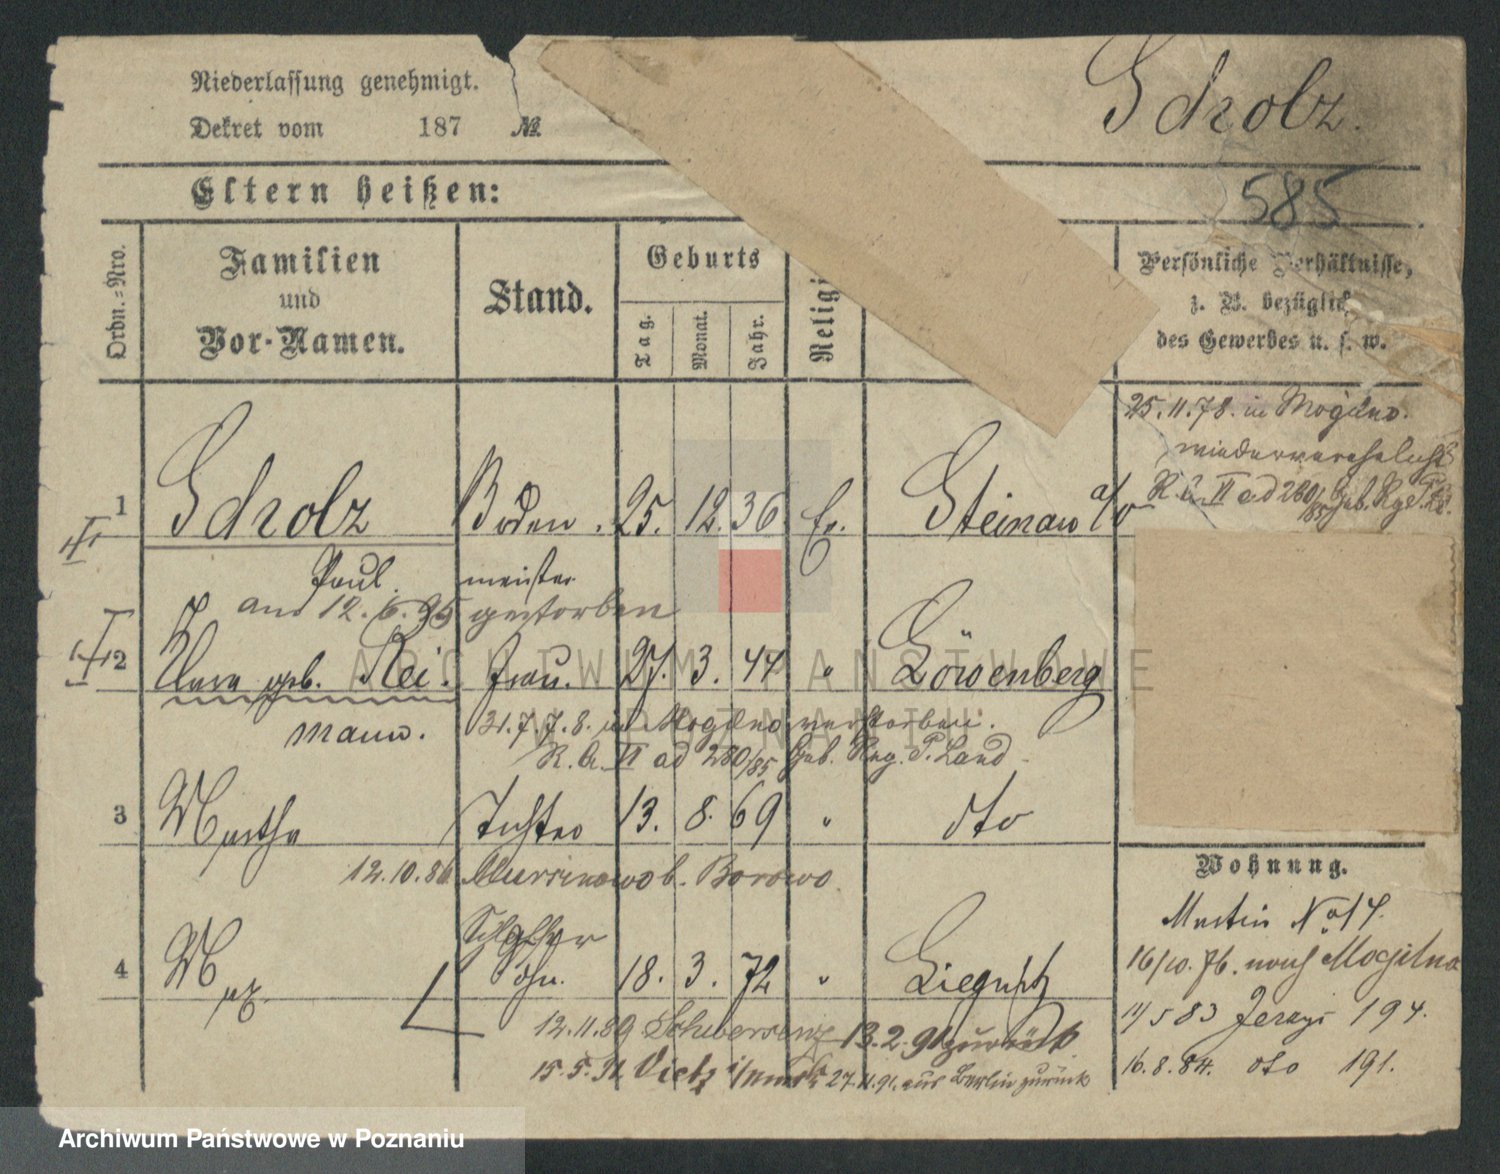 Niederlassung genehmigt.
Dekret vom 187 №
Scholz.
585
Eltern heißen:
Ordn.-Nro.
Familien
und
Vor-Namen.
Stand.
Geburts
Tag.
Monat.
Jahr.
Religi
Persönliche Verhältnisse,
z. B. bezüglich
des Gewerbes u. s. w.
25.11.78. in Mogilno.
wiederverehelicht
R. A. VI ad 280/85
1 Scholz Boden 25. 12. 36 Ev. Steinau a/O
Paul. meister
am 12.6.95 gestorben
2 Clara geb. Rei. Frau. 27. 3. 44 " Löwenberg
mann. 31.7.78. in Mogilno verstorben.
R. A. VI ad 280/85 Land
3 Martha Tochter 13. 8. 69 " dto
12.10.86 Murzinowo b. Borowo.
Schlosser
4 Max. Sohn. 18. 3. 72 " Liegnitz
12.11.89 Schwersenz 13.2.91 zurück
15.5.91 Vietz 27.11.91. aus Berlin zurück
Wohnung.
Martin No 14.
16/10.76. nach Mogilno
14 5 83 Jerzyc 194.
16.8.84. dto 191.
Archiwum Państwowe w Poznaniu
ARCHIWUM PAŃSTWOWE
W POZNANIU